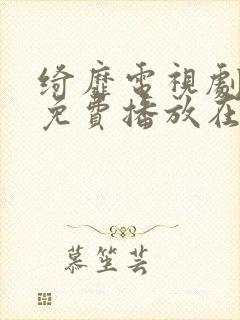 綺靡電視劇
免費播放在
慕笙芸